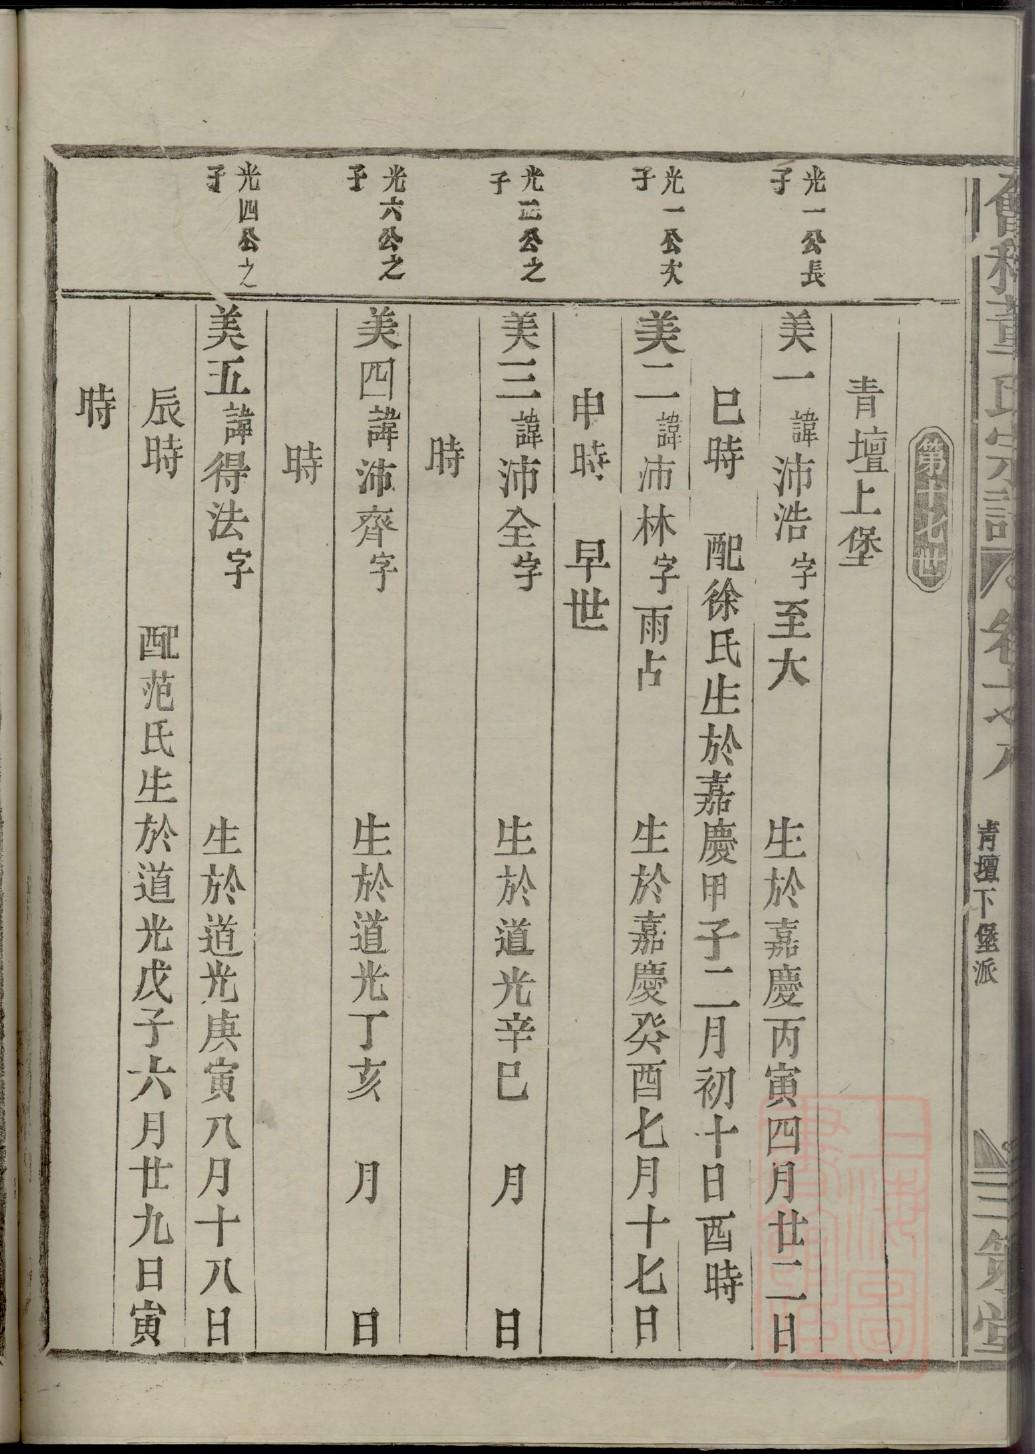 會稽章氏家譜
卷
青壇下堡派
堂
青壇上堡
光一公長
子
美一諱沛浩字至大 生於嘉慶丙寅四月廿二日
巳時 配徐氏生於嘉慶甲子二月初十日酉時
光一公次
子
美二諱沛林字雨占 生於嘉慶癸酉七月十七日
申時 早世
光三公之
子
美三諱沛全字 生於道光辛巳 月 日
時
光六公之
子
美四諱沛齊字 生於道光丁亥 月 日
時
光四公之
子
美五諱得法字 生於道光庚寅八月十八日
辰時 配范氏生於道光戊子六月廿九日寅
時
上海圖
書館藏